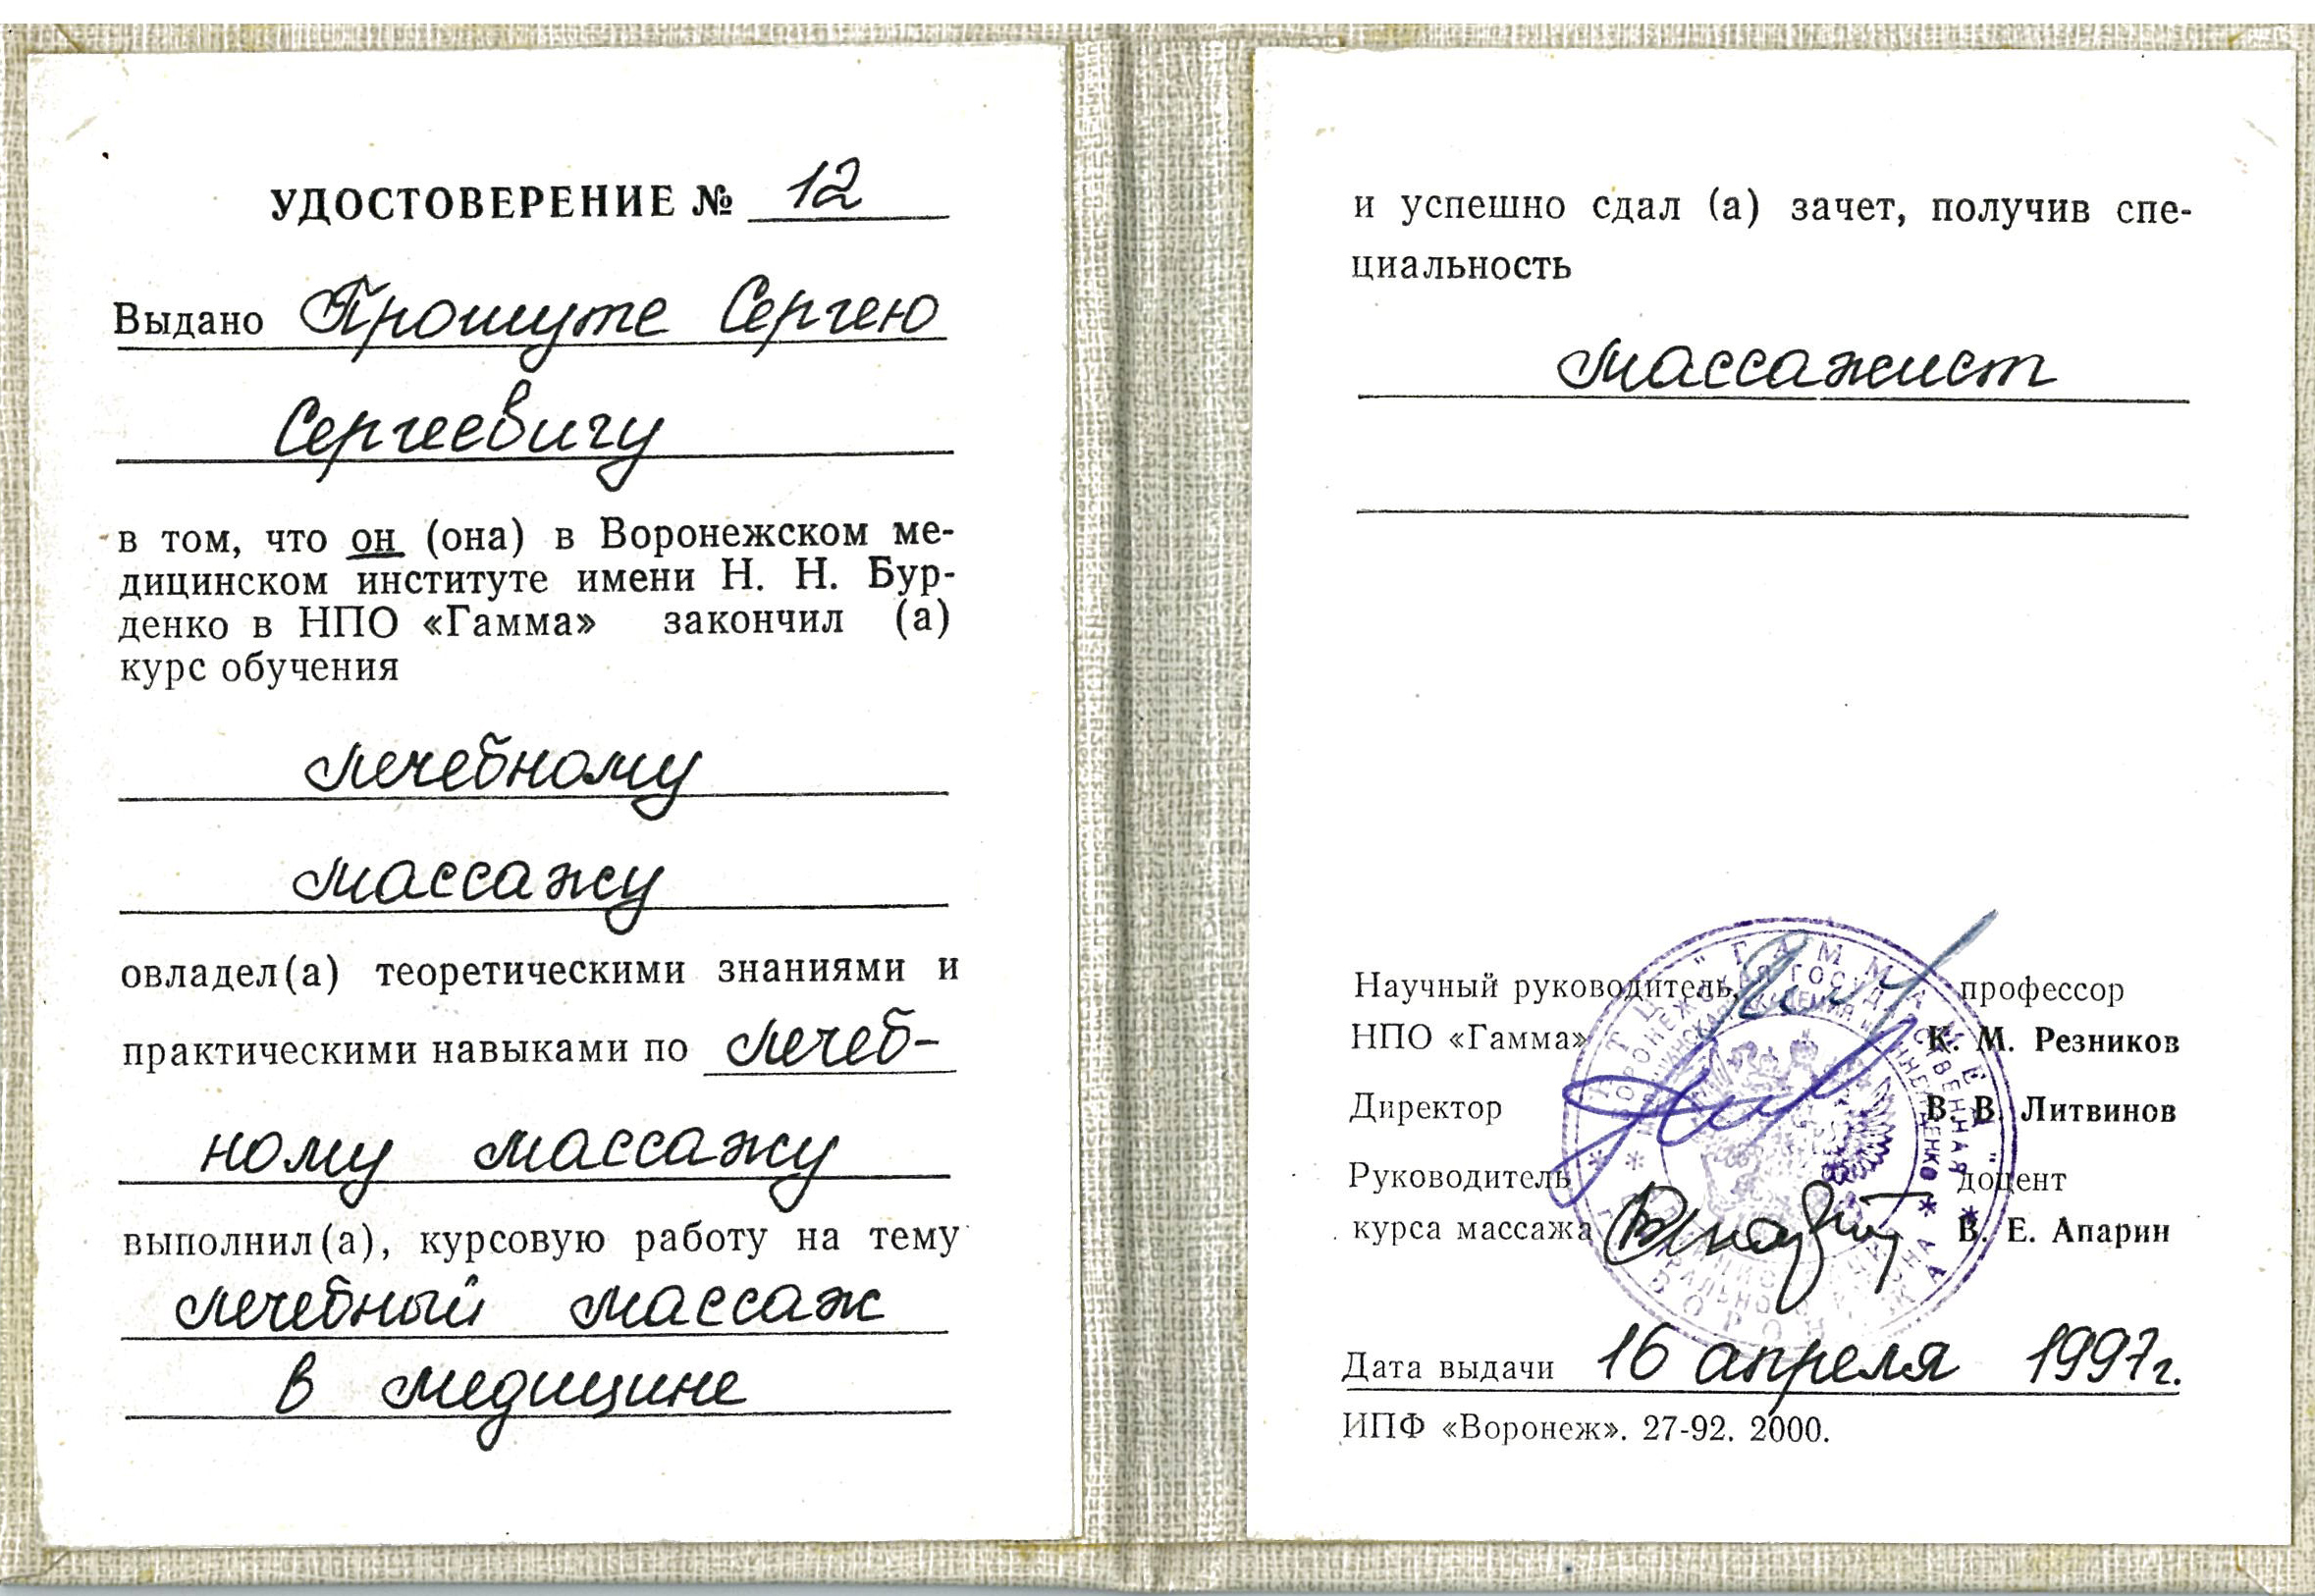 УДОСТОВЕРЕНИЕ № 12
Выдано Прошуте Сергею
Сергеевичу
в том, что он (она) в Воронежском ме-
дицинском институте имени Н. Н. Бур-
денко в НПО «Гамма» закончил (а)
курс обучения
лечебному
массажу
овладел(а) теоретическими знаниями и
практическими навыками по лечеб-
ному массажу
выполнил(а), курсовую работу на тему
лечебный массаж
в медицине
и успешно сдал (а) зачет, получив спе-
циальность
массажист
Научный руководитель, профессор
НПО «Гамма» К. М. Резников
Директор В. В. Литвинов
Руководитель доцент
курса массажа В. Е. Апарин
Дата выдачи 16 апреля 1997г.
ИПФ «Воронеж». 27-92. 2000.